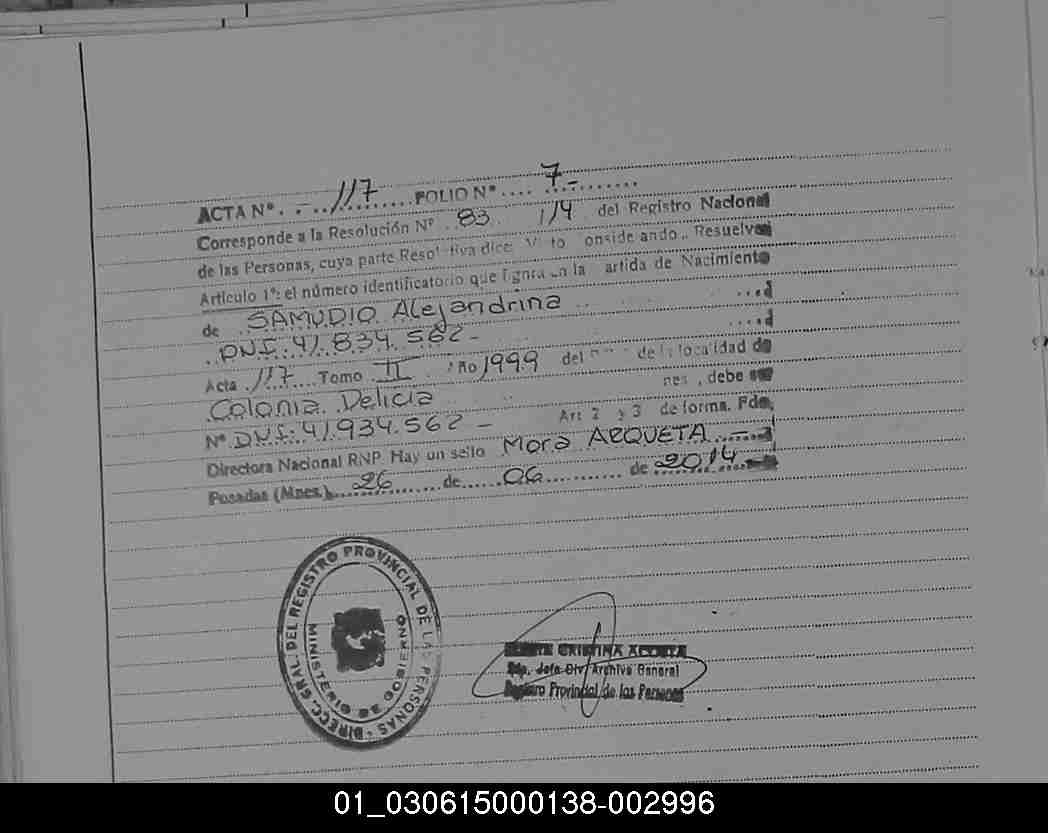 ACTA Nº. - 117 FOLIO Nº.... 7-
Corresponde a la Resolución Nº 83 114 del Registro Nacional
de las Personas, cuya parte Resol tiva dice: V to onside ando.. Resuelve
Artículo 1º: el número identificatorio que figura en la artida de Nacimiento
de SAMUDIO Alejandrina
DNI: 41.834.562-
Acta 117 Tomo II Año 1999 del de la localidad de
Colonia Delicia nes , debe ser
Nº DNI: 41934.562- Art 2 y 3 de forma. Fdo.
Directora Nacional RNP. Hay un sello Mora ARQUETA.-
Posadas (Mnes.), 26 de 06 de 2014
DIRECC. GRAL. DEL REGISTRO PROVINCIAL DE LAS PERSONAS
MINISTERIO DE GOBIERNO
CRISTINA ACOSTA
Jefe Div Archivo General
Registro Provincial de las Personas
01_030615000138-002996